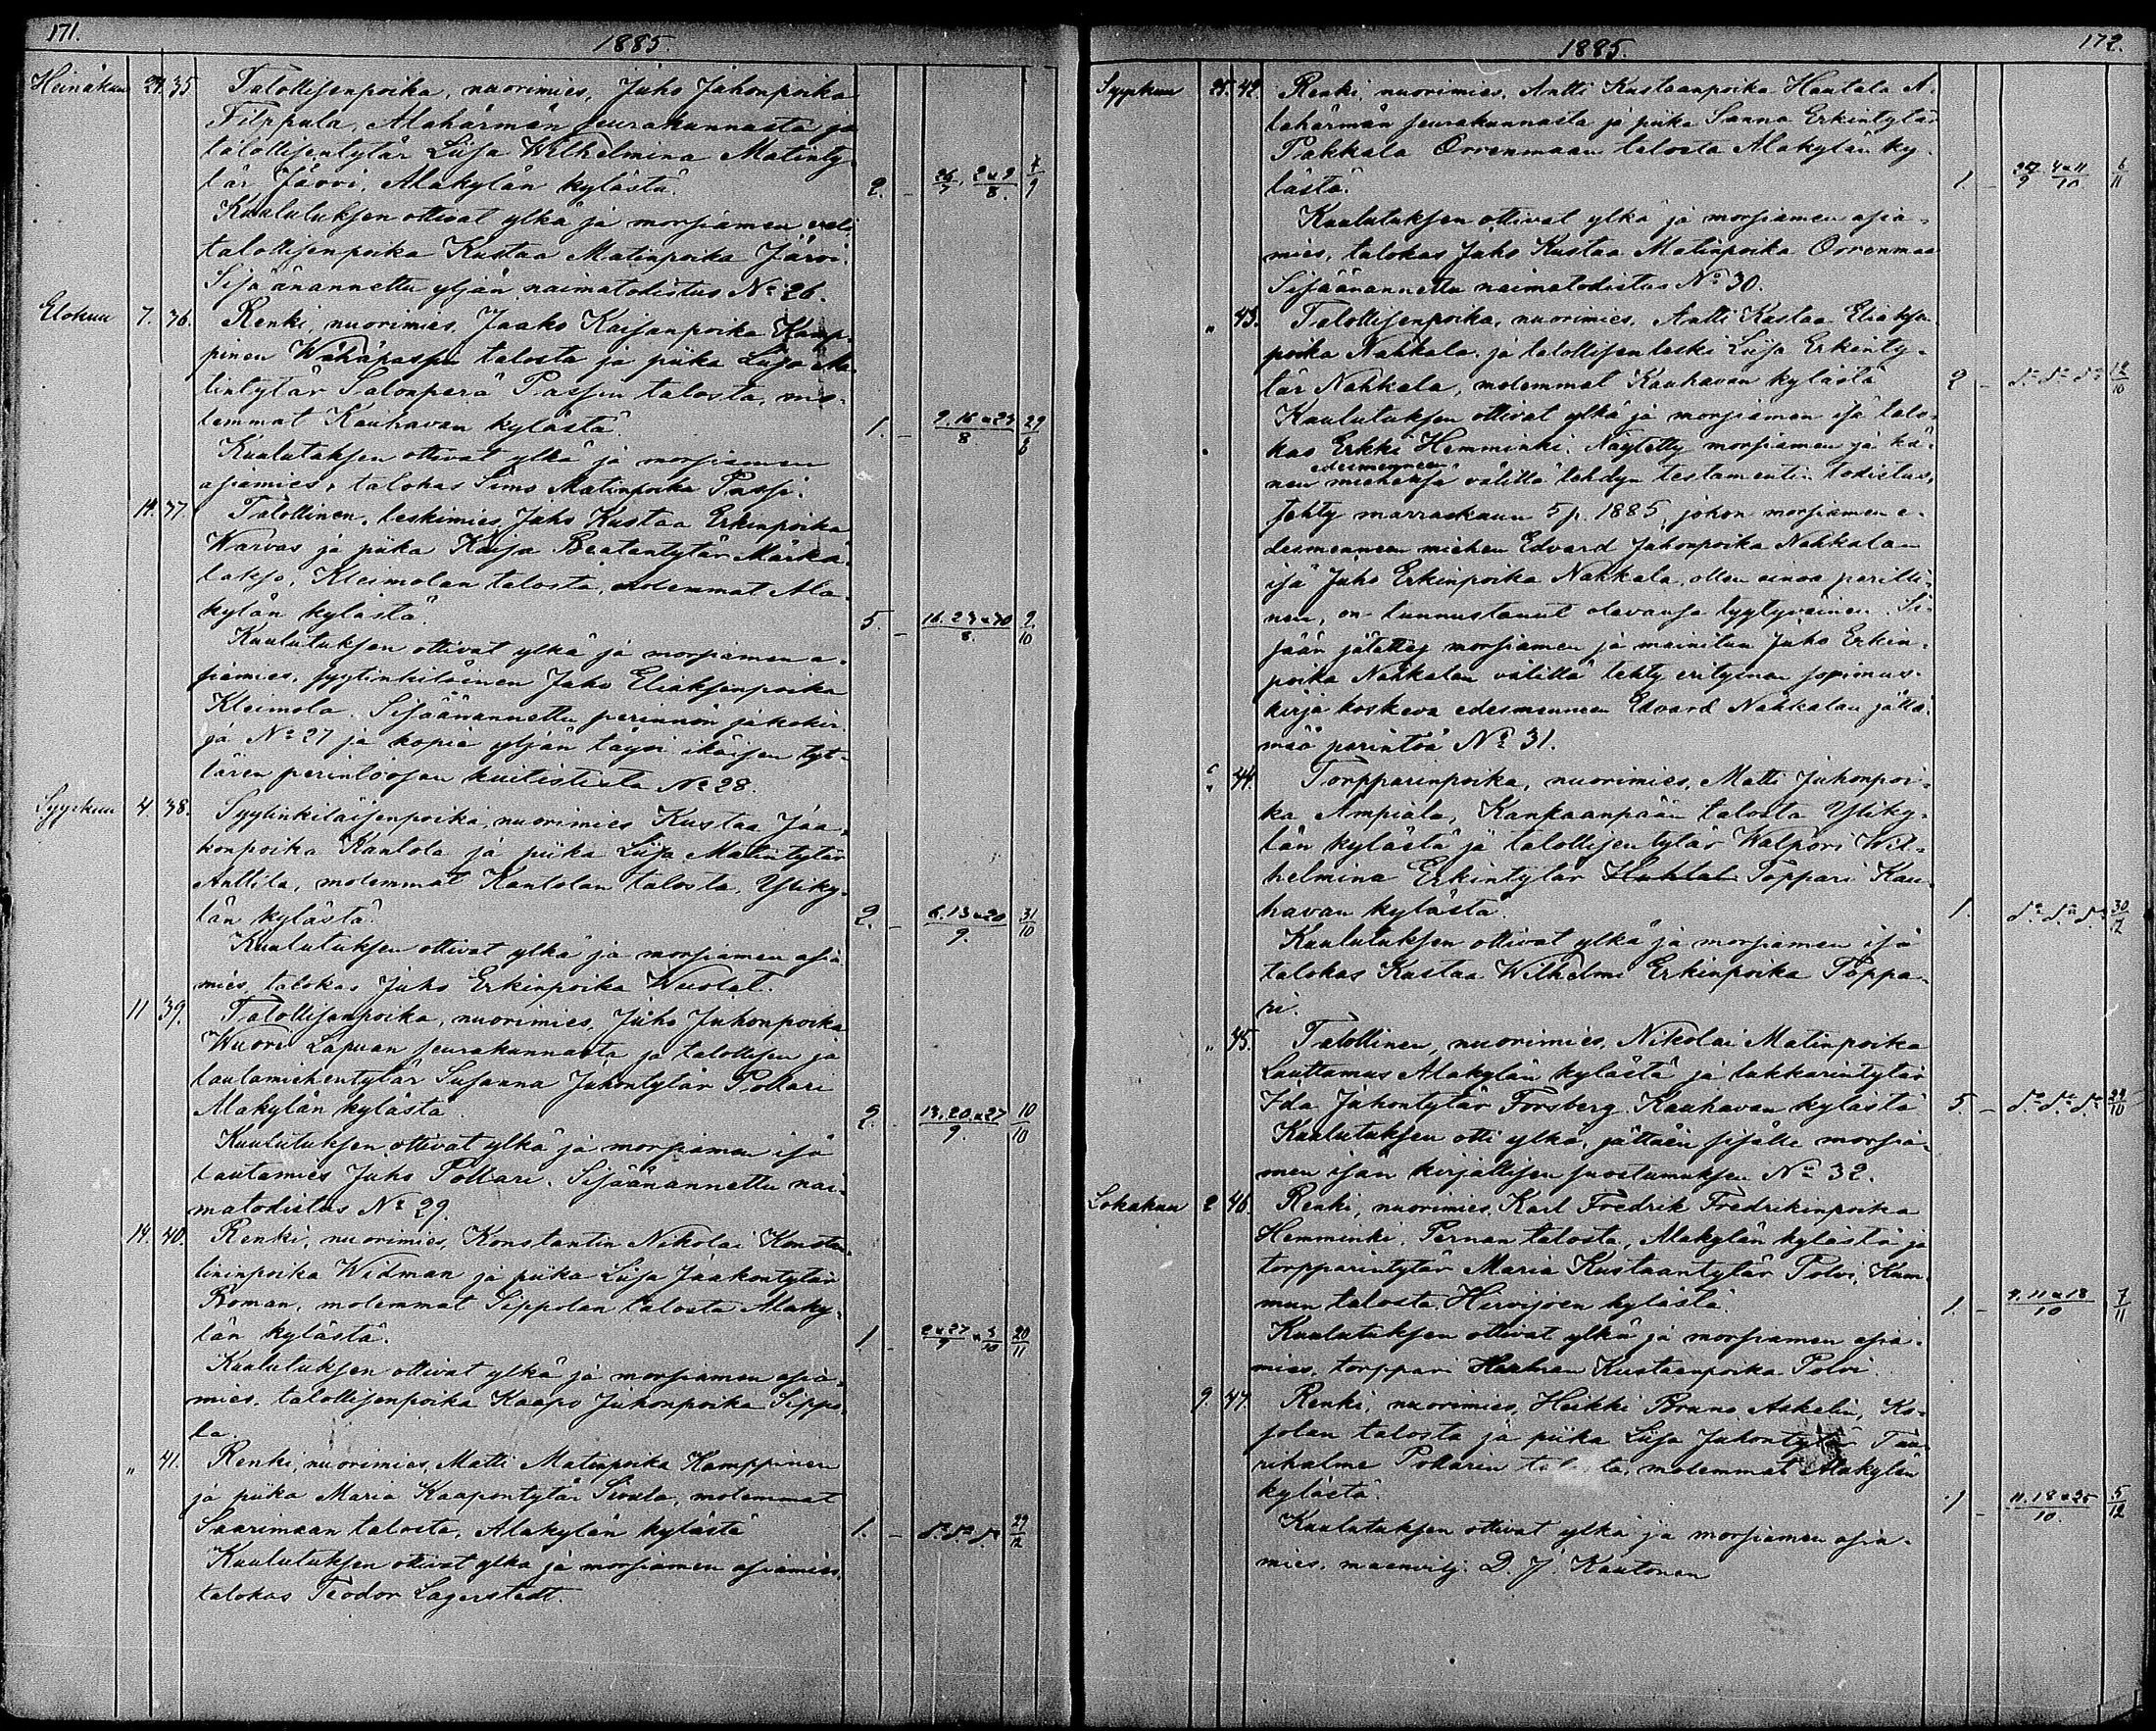 171.
1885.
Heinäkuu 24. 35 Talollisenpoika, nuorimies, Juho Juhonpoika
Filppula, Alahärmän seurakunnasta ja
talollisentytär Liisa Wilhelmina Matinty-
tär Järvi, Alakylän kylästä. 2. – 26/7, 2 a 9/8.
Kuulutuksen ottivat ylkä ja morsiamen veli
talollisenpoika Kustaa Matinpoika Järvi.
Sisäänannettu yljän naimatodistus No 26.
Elokuu 7. 36. Renki, nuorimies, Jaako Kaisanpoika Kamp-
pinen Wähäpassin talosta ja piika Liisa Ma-
tintytär Salonperä Passin talosta, mo-
lemmat Kauhavan kylästä. 1. – 9. 16 a 23/8
Kuulutuksen ottivat ylkä ja morsiamen
asiamies, talokas Simo Matinpoika Passi.
14. 37. Talollinen, leskimies Juho Kustaa Erkinpoika
Warvas ja piika Kaisa Beatantytär Märkä-
lakso, Kleimolan talosta, molemmat Ala-
kylän kylästä. 5. – 16. 23 a 30/8. 9/10
Kuulutuksen ottivat ylkä ja morsiamen a-
siamies, syytinkiläinen Juho Eliaksenpoika
Kleimola. Sisäänannettu perinnön jakokir-
ja No 27 ja kopia yljän täysi ikäisen tyt-
tären perintöosan kuitistista No 28.
Syyskuu 4. 38. Syytinkiläisenpoika, nuorimies Kustaa Jaa-
konpoika Kantola ja piika Liisa Matintytär
Anttila, molemmat Kantolan talosta, Yliky-
län kylästä. 2. – 6. 13 a 20/9. 31/10
Kuulutuksen ottivat ylkä ja morsiamen asia
mies, talokas Juho Erkinpoika Wuotal.
11 39. Talollisenpoika, nuorimies, Juho Juhonpoika
Wuori Lapuan seurakunnasta ja talollisen ja
lautamiehentytär Susanna Juhontytär Pollari
Alakylän kylästä. 2. – 13. 20 a 27/9. 10/10
Kuulutuksen ottivat ylkä ja morsiamen isä
lautamies Juho Pollari. Sisäänannettu nai-
matodistus No 29.
14. 40. Renki, nuorimies, Konstantin Nikolai Konstan-
tininpoika Widman ja piika Liisa Jaakontytär
Roman, molemmat Sippolan talosta Alaky-
län kylästä. 1 – 20/11
Kuulutuksen ottivat ylkä ja morsiamen asia-
mies, talollisenpoika Kaapo Juhonpoika Sippo-
la.
„ 41. Renki, nuorimies, Matti Matinpoika Kamppinen
ja piika Maria Kaapontytär Sivula, molemmat
Saarimaan talosta, Alakylän kylästä 1. – do do do 29/12
Kuulutuksen ottivat ylkä ja morsiamen asiamies,
talokas Teodor Lagerstedt.
1885.
172.
Syyskuu 25. 42. Renki, nuorimies, Antti Kustaanpoika Hautala A-
lahärmän seurakunnasta ja piika Sanna Erkintytär
Pakkala Orrenmaan talosta Alakylän ky-
lästä. 1. – 27/9 4 a 11/10 6/11
Kuulutuksen ottivat ylkä ja morsiamen asia-
mies, talokas Juho Kustaa Matinpoika Orrenmaa
Sisäänannettu naimatodistus No 30.
„ 43. Talollisenpoika, nuorimies, Antti Kustaa Eliaksen
poika Nahkala ja talollisen leski Liisa Erkinty-
tär Nahkala, molemmat Kauhavan kylästä 2 – do do do
Kuulutuksen ottivat ylkä ja morsiamen isä talo-
kas Erkki Hemminki. Näytetty morsiamen ja hä-
edesmenneen
nen miehensä välillä tehdyn testamentin todistus,
tehty marraskuun 5 p. 1885, johon morsiamen e-
desmenneen miehen Edvard Juhonpoika Nahkalan
isä Juho Erkinpoika Nahkala, ollen ainoa perilli-
nen, on tunnustanut olevansa tyytyväinen. Si-
sään jätetty morsiamen ja mainitun Juho Erkin-
poika Nahkalan välillä tehty erityinen sopimus-
kirja koskeva edesmenneen Edvard Nahkalan jättä-
mää perintöä No 31.
„ 44. Torpparinpoika, nuorimies, Matti Juhonpoi-
ka Ampiala, Kankaanpään talosta Yliky-
län kylästä ja talollisen tytär Walpori Wil-
helmina Erkintytär Toppari Kau-
havan kylästä. 1. do do do 30/12
Kuulutuksen ottivat ylkä ja morsiamen isä
talokas Kustaa Wilhelmi Erkinpoika Toppa-
ri.
„ 45. Talollinen, nuorimies, Nikolai Matinpoika
Lauttamus Alakylän kylästä ja lakkarintytär
Ida Juhontytär Forsberg Kauhavan kylästä 5. – do do do
Kuulutuksen otti ylkä, jättäen sisälle morsia-
men isän kirjallisen suostumuksen No 32.
Lokakuu 2 46. Renki, nuorimies, Karl Fredrik Fredrikinpoika
Hemminki, Pernan talosta, Alakylän kylästä ja
torpparintytär Maria Kustaantytär Polvi, Kam-
mun talosta, Hirvijoen kylästä. 1. – 4. 11 a 18/10 7/11
Kuulutuksen ottivat ylkä ja morsiamen asia-
mies, torppari Herman Kustaanpoika Polvi.
9. 47. Renki, nuorimies, Heikki Bruno Askelin, Ko-
solan talosta ja piika Liisa Juhontytär Tuu-
rihalme Pollarin talosta, molemmat Alakylän
kylästä. 1 – 11. 18 a 25/10. 5/12
Kuulutuksen ottivat ylkä ja morsiamen asia-
mies, maanvilj. D. J. Kautonen